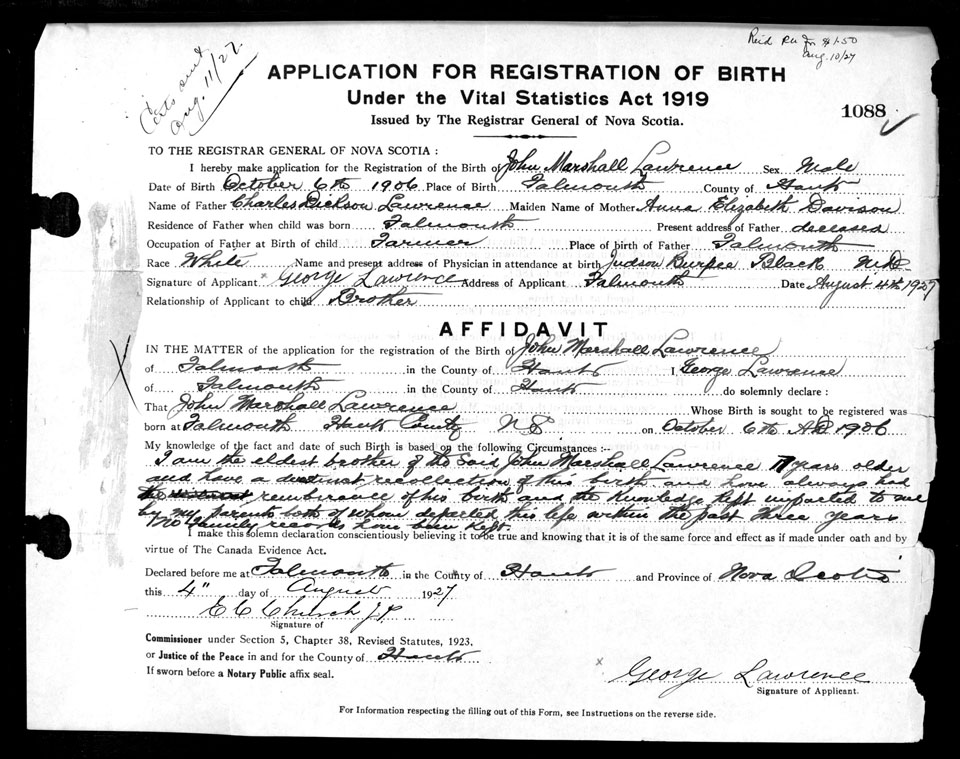 Certs out
Aug. 11/27.
Reid Ru $1.50
Aug. 10/27
APPLICATION FOR REGISTRATION OF BIRTH
Under the Vital Statistics Act 1919
Issued by The Registrar General of Nova Scotia.
1088
TO THE REGISTRAR GENERAL OF NOVA SCOTIA :
I hereby make application for the Registration of the Birth of John Marshall Lawrence Sex Male
Date of Birth October 6th 1906 Place of Birth Falmouth County of Hants
Name of Father Charles Dickson Lawrence Maiden Name of Mother Anna Elizabeth Davison
Residence of Father when child was born Falmouth Present address of Father deceased
Occupation of Father at Birth of child Farmer Place of birth of Father Falmouth
Race White Name and present address of Physician in attendance at birth Judson Burpee Black
Signature of Applicant George Lawrence Address of Applicant Falmouth Date August 4th 1927
Relationship of Applicant to child Brother
AFFIDAVIT
IN THE MATTER of the application for the registration of the Birth of John Marshall Lawrence
of Falmouth in the County of Hants I George Lawrence
of Falmouth in the County of Hants do solemnly declare :
That John Marshall Lawrence Whose Birth is sought to be registered was
born at Falmouth Hants County N S on October 6th AD 1906
My knowledge of the fact and date of such Birth is based on the following Circumstances :-
I am the eldest brother of the Said John Marshall Lawrence 17 years older
and have a distinct recollection of this birth and have always had
the rememberance of his birth and the knowledge kept imparted to me
by my parents both of whom departed this life within the past three years
No family records have been kept.
I make this solemn declaration conscientiously believing it to be true and knowing that it is of the same force and effect as if made under oath and by
virtue of The Canada Evidence Act.
Declared before me at Falmouth in the County of Hants and Province of Nova Scotia
this 4" day of August 1927
E C Church J.P.
Signature of
Commissioner under Section 5, Chapter 38, Revised Statutes, 1923.
or Justice of the Peace in and for the County of Hants
If sworn before a Notary Public affix seal.
x George Lawrence
Signature of Applicant.
For Information respecting the filling out of this Form, see Instructions on the reverse side.